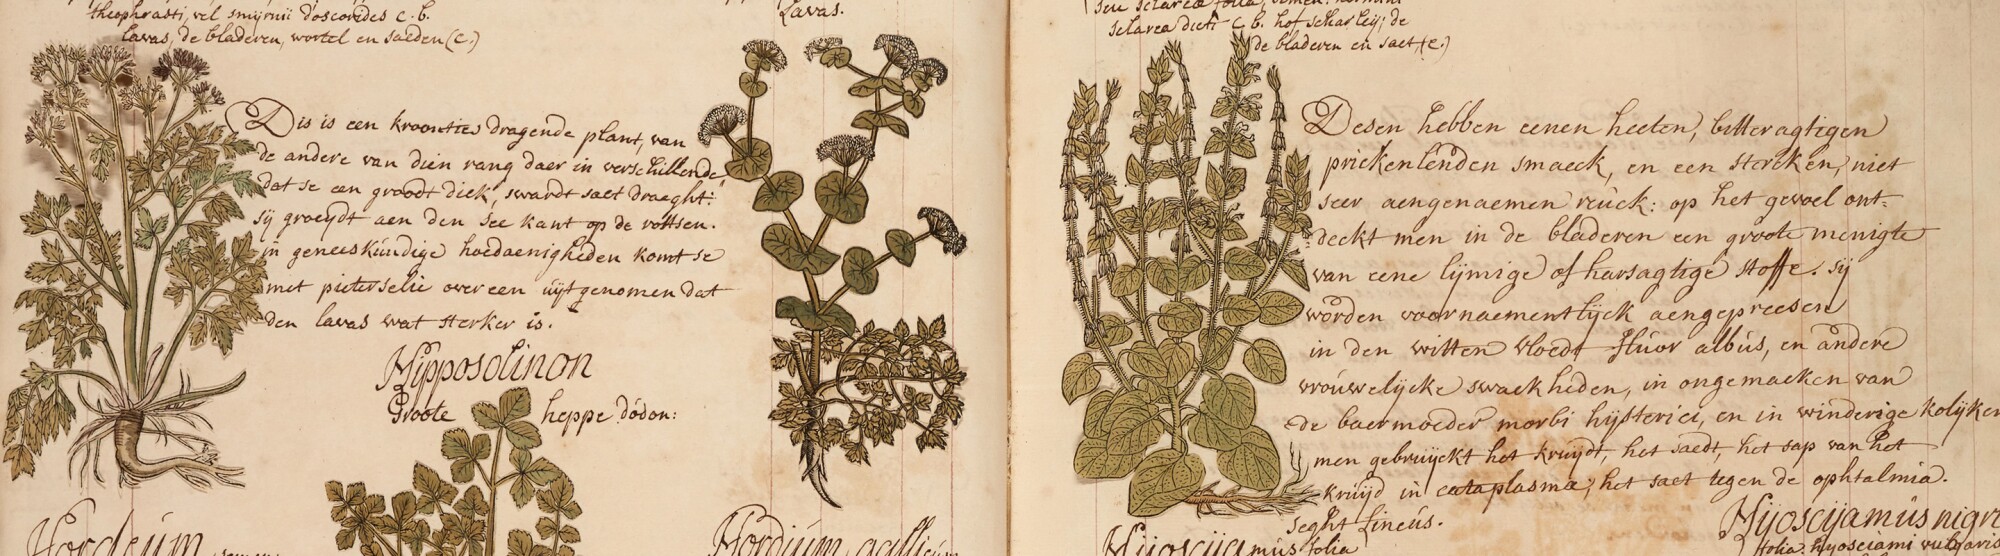 theophrasti, vel smyrnii dioscorides c. b.
lavas, de bladeren, wortel en saeden (e.)
Dis is een kroonties dragende plant, van
de andere van dien rang daer in verschillende
dat se een groodt dick, swardt saet draeght:
sij groeijdt aen den see kant op de rottsen.
in geneeskúndige hoedaenigheden komt se
met pieterselie over een úijtgenomen dat
den lavas wat sterker is.
Hipposolinon
Groote heppe dódon:
Hordeúm
Lavas.
Hordiúm gallicúm
seu sclarea folia, semen: hormini
sclarea dicti c. b. hof scharleij; de
de bladeren en saet (e.)
Desen hebben eenen heeten, bitteragtigen
prickenlenden smaeck, en een stercken, niet
seer aengenaemen reúck: op het gevoel ont=
deckt men in de bladeren een groote menigte
van eene lijmige of harsagtige stoffe. sij
worden voornaementlijck aengepreesen
in den witten vloedt flúor albús, en andere
vroúwelijcke swackheden, in ongemacken van
de baermoeder morbi hijsterici, en in winderige kolijken
men gebrúijckt het krúijdt, het saedt, het sap van het
krúijd in cataplasma, het saet tegen de ophtalmia.
seght Lineús.
Hijoscijamús folia
Hijoscijamús nigri
folia hyosciami vulgaris